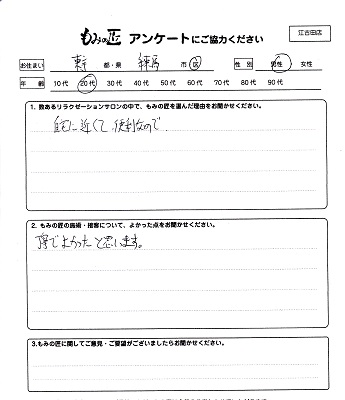 もみの匠 アンケートにご協力ください
江古田店
お住まい 東京 都・県 練馬 市・区 性別 男性 女性
年齢 10代 20代 30代 40代 50代 60代 70代 80代 90代
1. 数あるリラクゼーションサロンの中で、もみの匠を選んだ理由をお聞かせください。
自宅に近くて便利なので
2. もみの匠の施術・接客について、よかった点をお聞かせください。
丁寧でよかったと思います。
3.もみの匠に関してご意見・ご要望がございましたらお聞かせください。